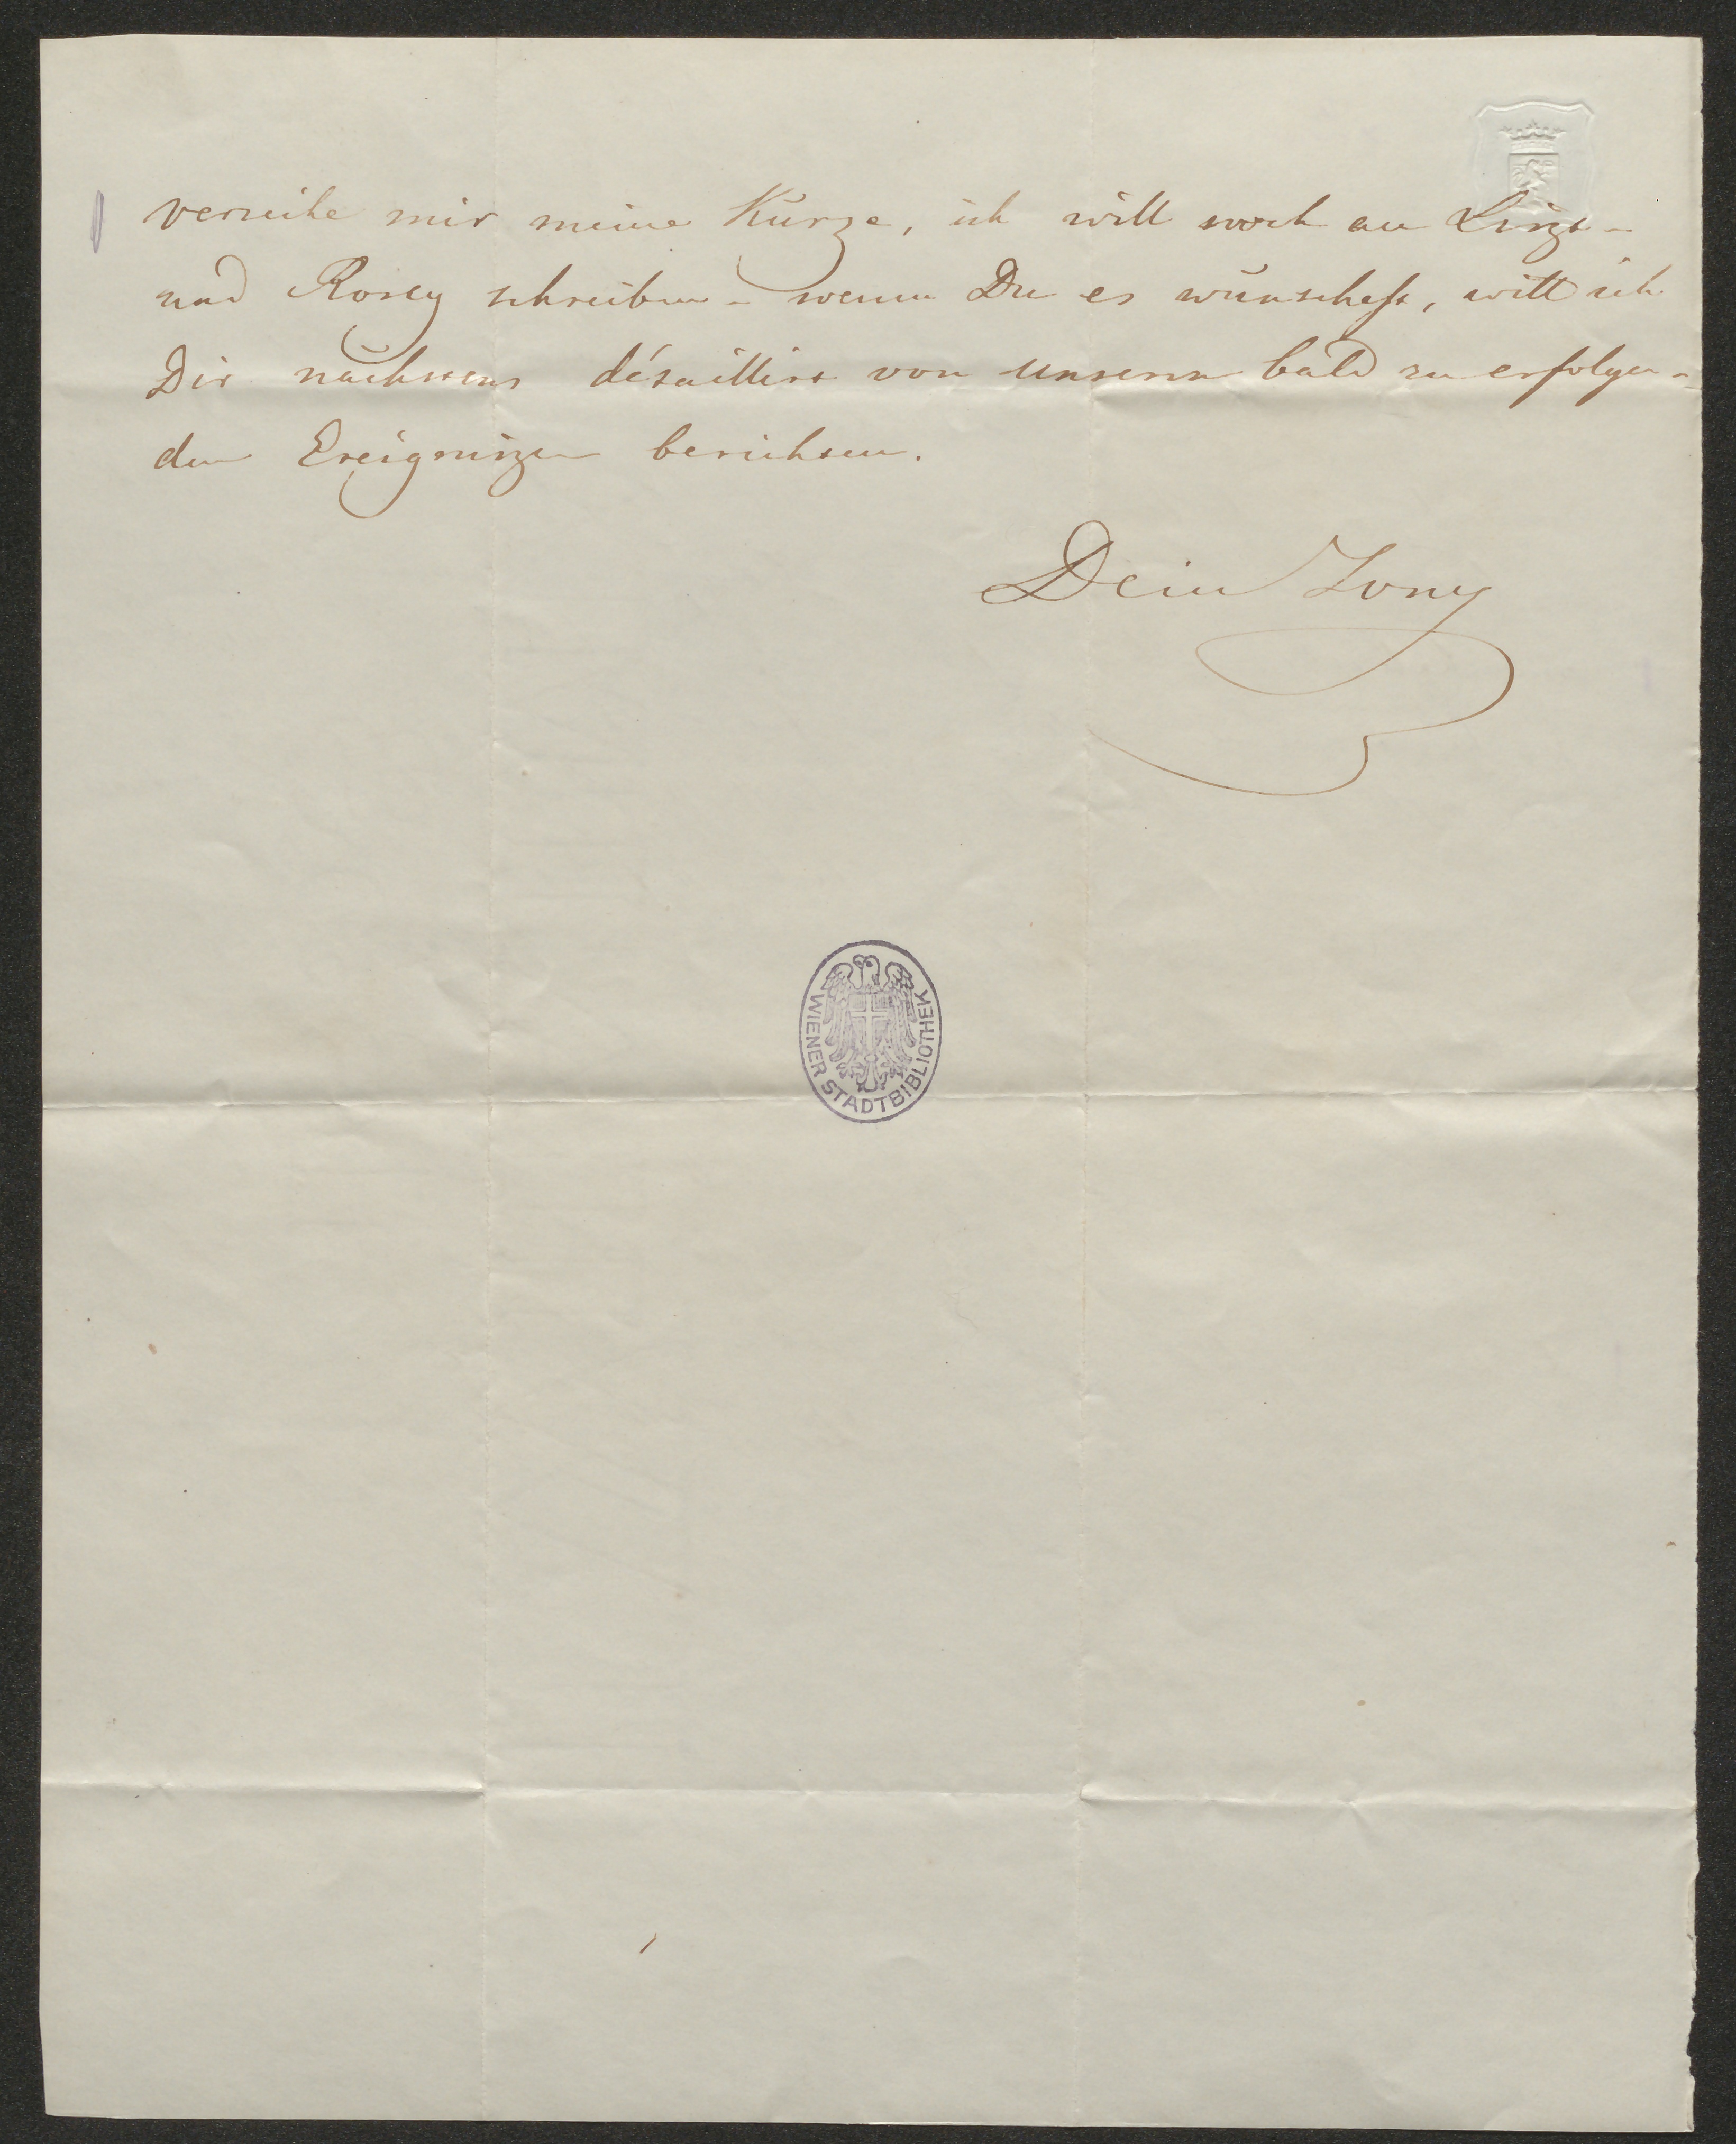 verzeihe mir meine Kürze, ich will noch an Liszt –
und Rosey schreiben – wenn Du es wünschest, will ich
Dir nächstens détaillirt von unsern bald zu erfolgen-
den Ereignißen berichten.
Dein Tony
WIENER STADTBIBLIOTHEK